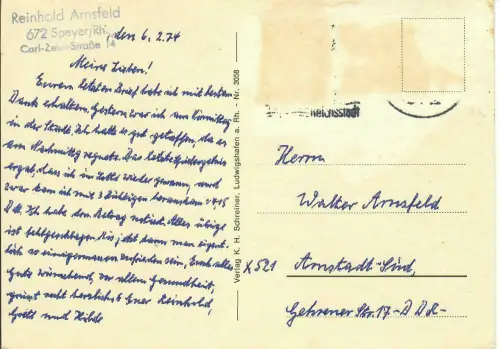 Reinhold Arnsfeld
672 Speyer/Rh.
Carl-Zeiss-Straße 14
, den 6. 2. 74
Meine Lieben!
Euern letzten Brief habe ich mit bestem
Dank erhalten. Gestern war ich am Vormittag
in der Stadt. Ich hatte es gut getroffen, da es
am Nachmittag regnete. Das letzte Spielergebnis
ergab, dass ich im Lotto wieder gewann, und
zwar kam ich mit 3 Richtigen heraus
DM. Ich habe den Betrag notiert. Alles übrige
ist fehlgeschlagen. Na, da kann man eigent-
lich so einigermassen zufrieden sein. Euch alles
Gute wünschend, vor allem Gesundheit,
grüsst recht herzlichst Euer Reinhold,
Gretl und Hilde
Verlag K. H. Schreiner, Ludwigshafen a. Rh. - Nr. 3058
Reichsstadt
Herrn
Walter Arnsfeld
X 521 Arnstadt-Süd,
Gehrener Str. 17 - DDR -